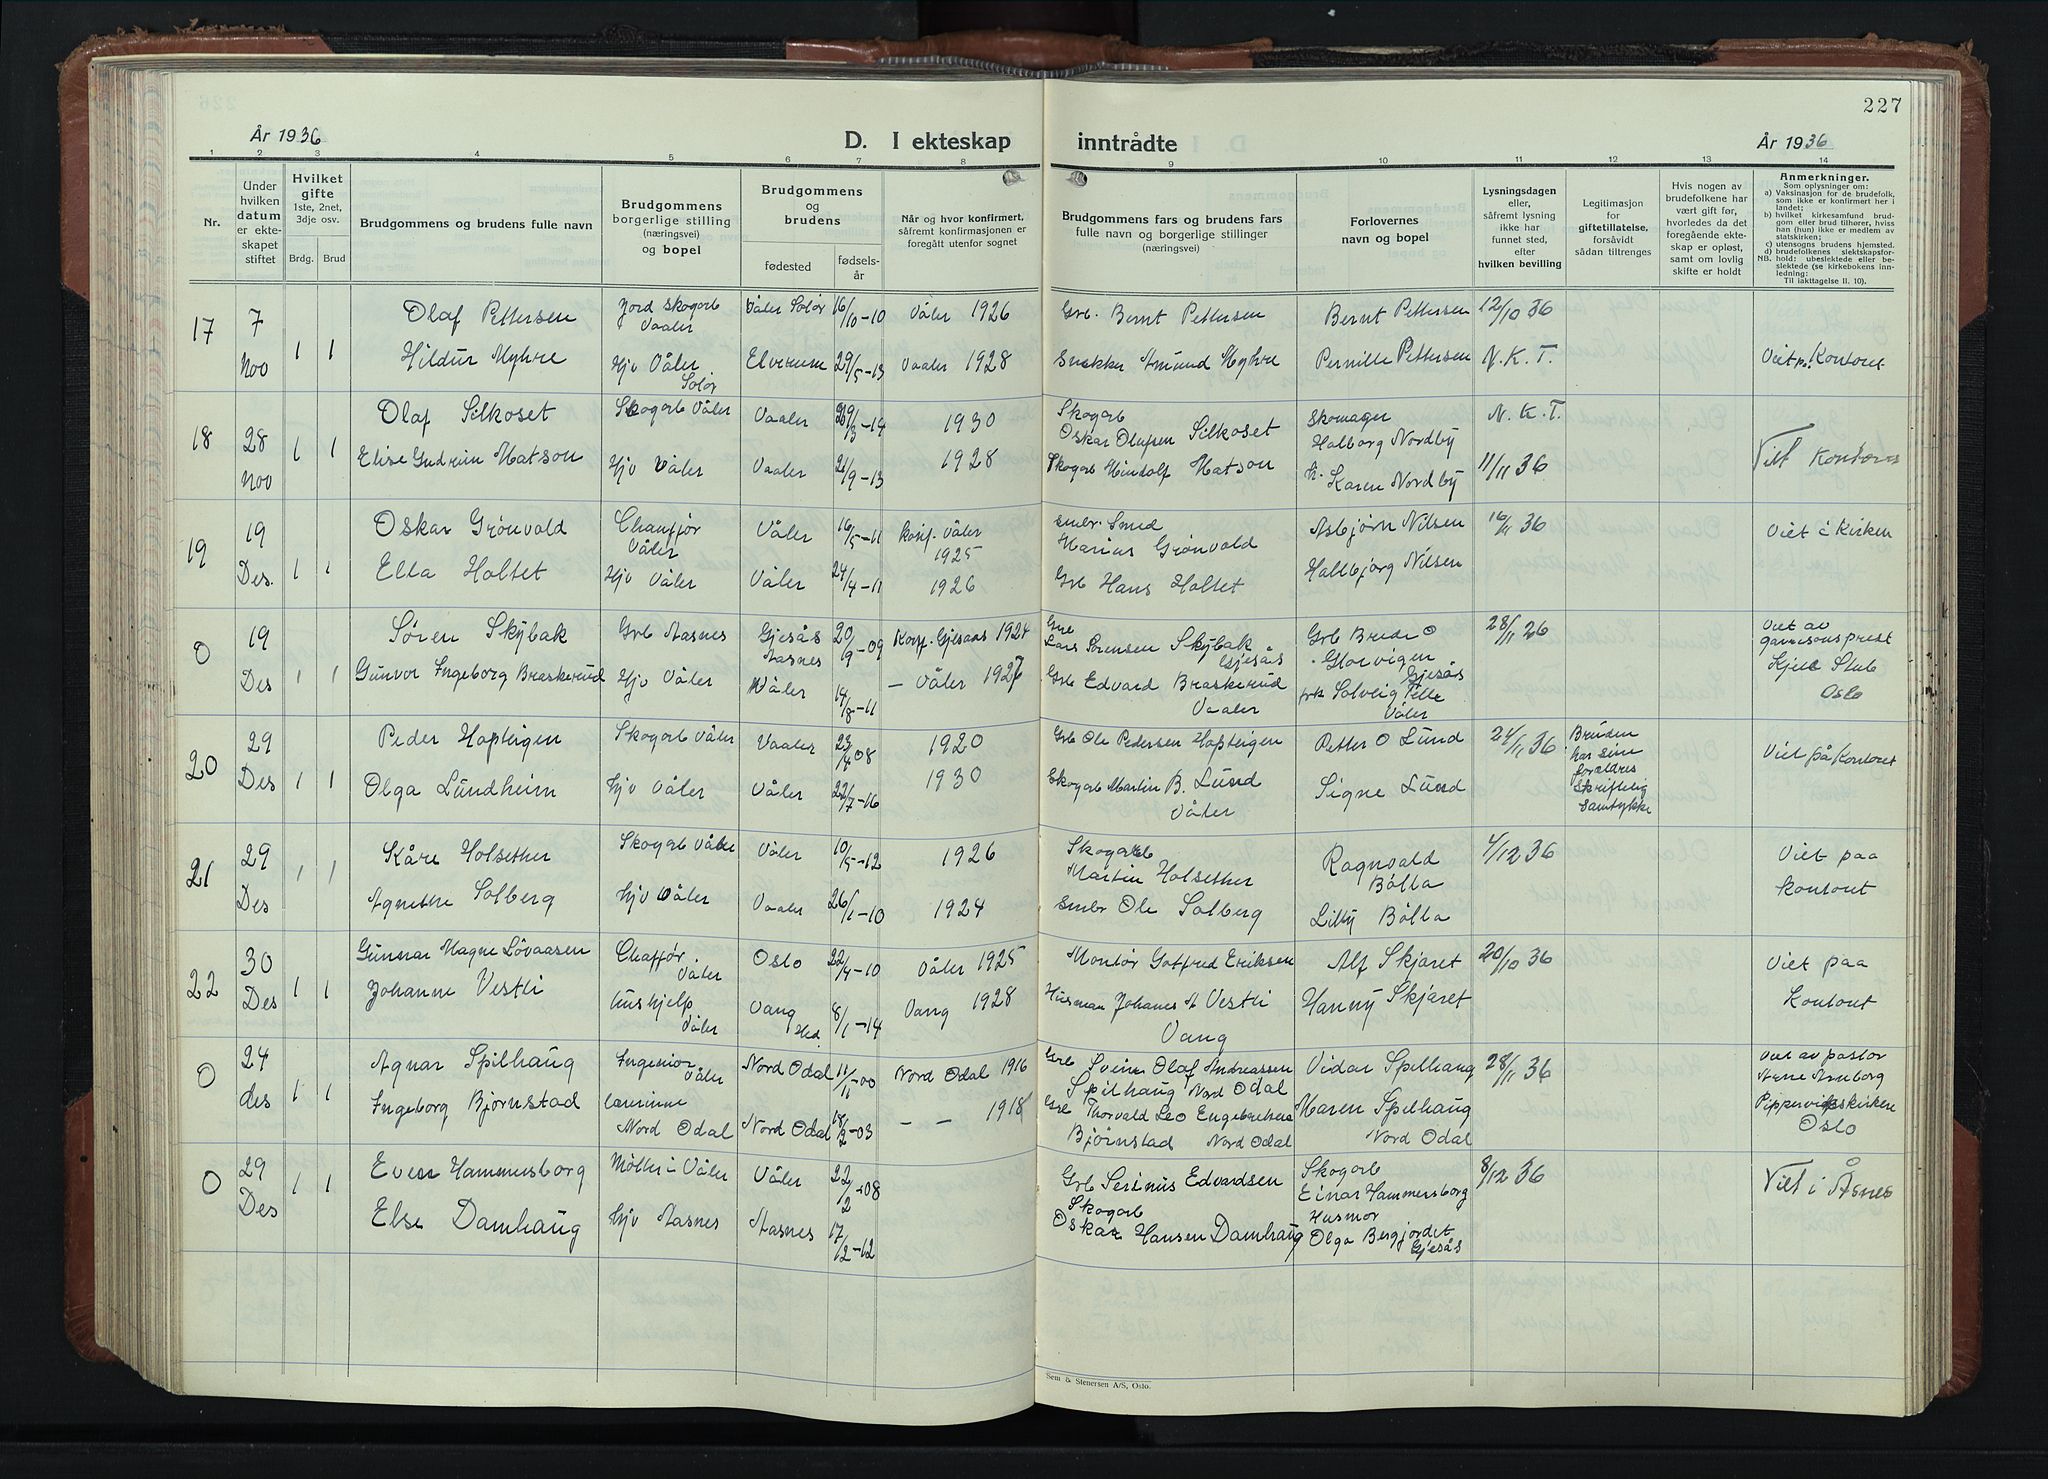 227
År 1936 D. I ekteskap inntrådte År 1936
1 2 3 4 5 6 7 8 9 10 11 12 13 14
Nr.
Under hvilken datum er ekteskapet stiftet
Hvilket gifte 1ste, 2net, 3dje osv.
Brdg. Brud
Brudgommens og brudens fulle navn
Brudgommens borgerlige stilling (næringsvei) og bopel
Brudgommens og brudens
fødested fødselsår
Når og hvor konfirmert, såfremt konfirmasjonen er foregått utenfor sognet
Brudgommens fars og brudens fars fulle navn og borgerlige stillinger (næringsvei)
Forlovernes navn og bopel
Lysningsdagen eller, såfremt lysning ikke har funnet sted, efter hvilken bevilling
Legitimasjon for giftetillatelse, forsåvidt sådan tiltrenges
Hvis nogen av brudefolkene har vært gift før, hvorledes da det foregående ekteskap er opløst, samt om lovlig skifte er holdt
Anmerkninger.
Som oplysninger om:
a) Vaksinasjon for de brudefolk, som ikke er konfirmert her i landet;
b) hvilket kirkesamfund brudgom eller brud tilhører, hviss han (hun) ikke er medlem av statskirken;
c) utensogns brudens hjemsted.
d) brudefolkenes slektskapsforhold: ubeslektede eller beslektede (se kirkebokens innledning:
NB. Til iakttagelse II. 10).
17 7 Nov 1 1 Olaf Pettersen Jord skogarb Vaaler Våler Solør 16/10-10 Våler 1926 Grb. Bernt Pettersen Bernt Pettersen 12/10 36
Hildur Myhre Hjv Våler Solør Elverum 29/5-13 Vaaler 1928 Snekker Amund Myhre Pernille Pettersen N.K.T. Viet på Kontoret
18 28 Nov 1 1 Olaf Silkoset Skogarb Våler Vaaler 29/3-14 1930 Skogarb Oskar Olufsen Silkoset Skomager Halborg Nordby N.K.T.
Elise Gudrun Matson Hjv Våler Vaaler 21/9-13 1928 Skogarb Hindolf Matson fr. Karen Nordby 11/11 36 Viet Kontoret
19 19 Des. 1 1 Oskar Grönvold Chauffør Våler Våler 16/5-11 konf. Våler 1925 smbr. Smed Marius Grönvold Asbjørn Nilsen 16/11 36 Viet i Kirken
Ella Holtet Hjv Våler Våler 24/4-11 1926 Grb Hans Holtet Halbjørg Nilsen
0 19 Des 1 1 Søren Skybak Grb Aasnes Gjesås Aasnes 20/9-09 Konf. Gjesaas 1924 Gre Lars Sørensen Skybak Gjesås Grb Brede O Glorvigen Gjesås 28/11 26 Viet av garnisonsprest Kjell Stub Oslo
Gunvor Ingeborg Braskerud Hjv Våler Våler 14/8-11 - Våler 1927 Grb Edvard Braskerud Vaaler frk Solveig Pelle Våler
20 29 Des 1 1 Peder Hapteigen Skogarb Våler Vaaler 23/4 08 1920 Grb Ole Pedersen Hapteigen Petter O Lund 24/11 36 Bruden har sine foreldres skriftelig samtykke Viet på Kontoret
Olga Lundheim Hjv Våler Våler 22/7-16 1930 Skogarb Martin B. Lund Våler Signe Lund
21 29 Des 1 1 Kåre Holsether Skogarb Våler Våler 10/5-12 1926 Skogarb Martin Holsether Ragnvald Bølla 4/12 36 Viet paa kontoret
Agnethe Solberg Hjv Våler Vaaler 26/1-10 1924 Smbr Ole Solberg Lilly Bölla
22 30 Des 1 1 Gunnar Magne Lövaasen Chaffør Våler Oslo 22/4-10 Våler 1925 Montør Gotfred Eriksen Alf Skjaret 20/10 36 Viet paa Kontoret
Johanne Vestli hushjelp Våler Vang Hed. 8/1-14 Vang 1928 Husman Johanes H Vestli Vang Hanny Skjaret
0 24 des 1 1 Agnar Spilhaug Ingeniør Våler Nord Odal 11/11-00 Nord Odal 1916 Gre Svein Olaf Andreassen Spilhaug Nord Odal Vidar Spilhaug 28/11 36 Viet av pastor Arne Arnborg Pipervigskirken Oslo
Ingeborg Bjørnstad lærerinne Nord Odal Nord Odal 18/2-03 - - 1918 Gre Thorvald Leo Engebretsen Bjørnstad Nord Odal Maren Spilhaug Nord Odal
0 29 Des 1 1 Even Hammersborg Møller i Våler Våler 22/2-08 Grb Serinus Edvardsen Skogarb Einar Hammersborg 8/12 36 Viet i Åsnes
Else Damhaug Hjv Aasnes Aasnes 17/2-12 Skogarb Oskar Hansen Damhaug Husmor Olga Bergjordet Gjesås
Sem & Stenersen A/S, Oslo.